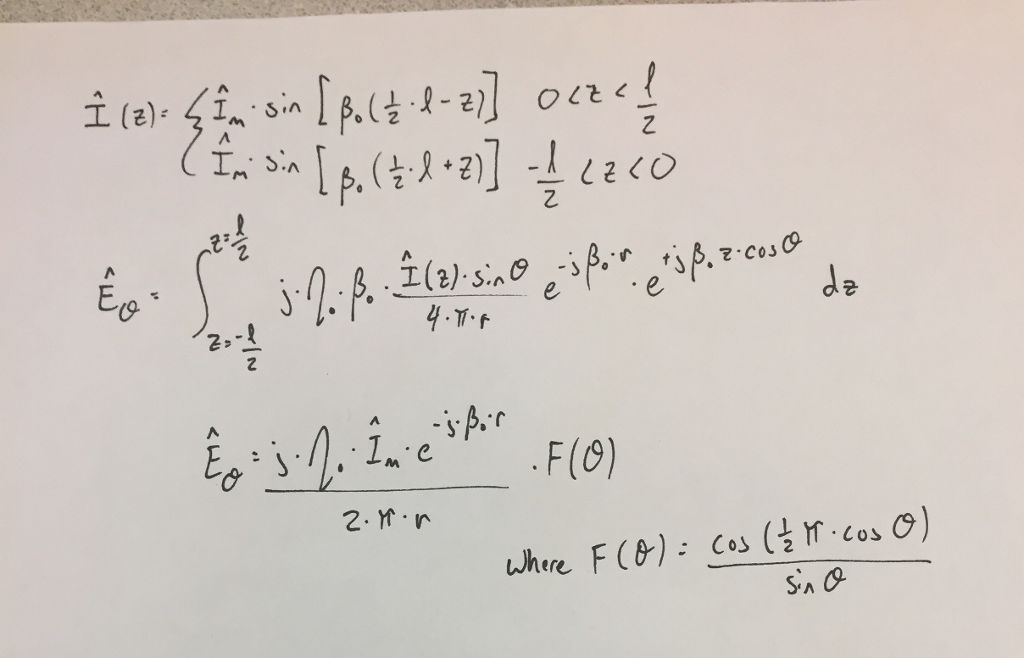 Î(z) = { Î_m · sin [β₀(½·l - z)] 0 < z < l/2
Î_m · sin [β₀(½·l + z)] -l/2 < z < 0
Ê_θ = ∫_{z=-l/2}^{z=l/2} j·η₀·β₀· (Î(z)·sinθ)/(4·π·r) e^{-jβ₀·r} · e^{+jβ₀z·cosθ} dz
Ê_θ = (j·η₀·Î_m·e^{-j·β₀·r})/(2·π·r) · F(θ)
where F(θ) = cos(½π·cosθ)/sinθ